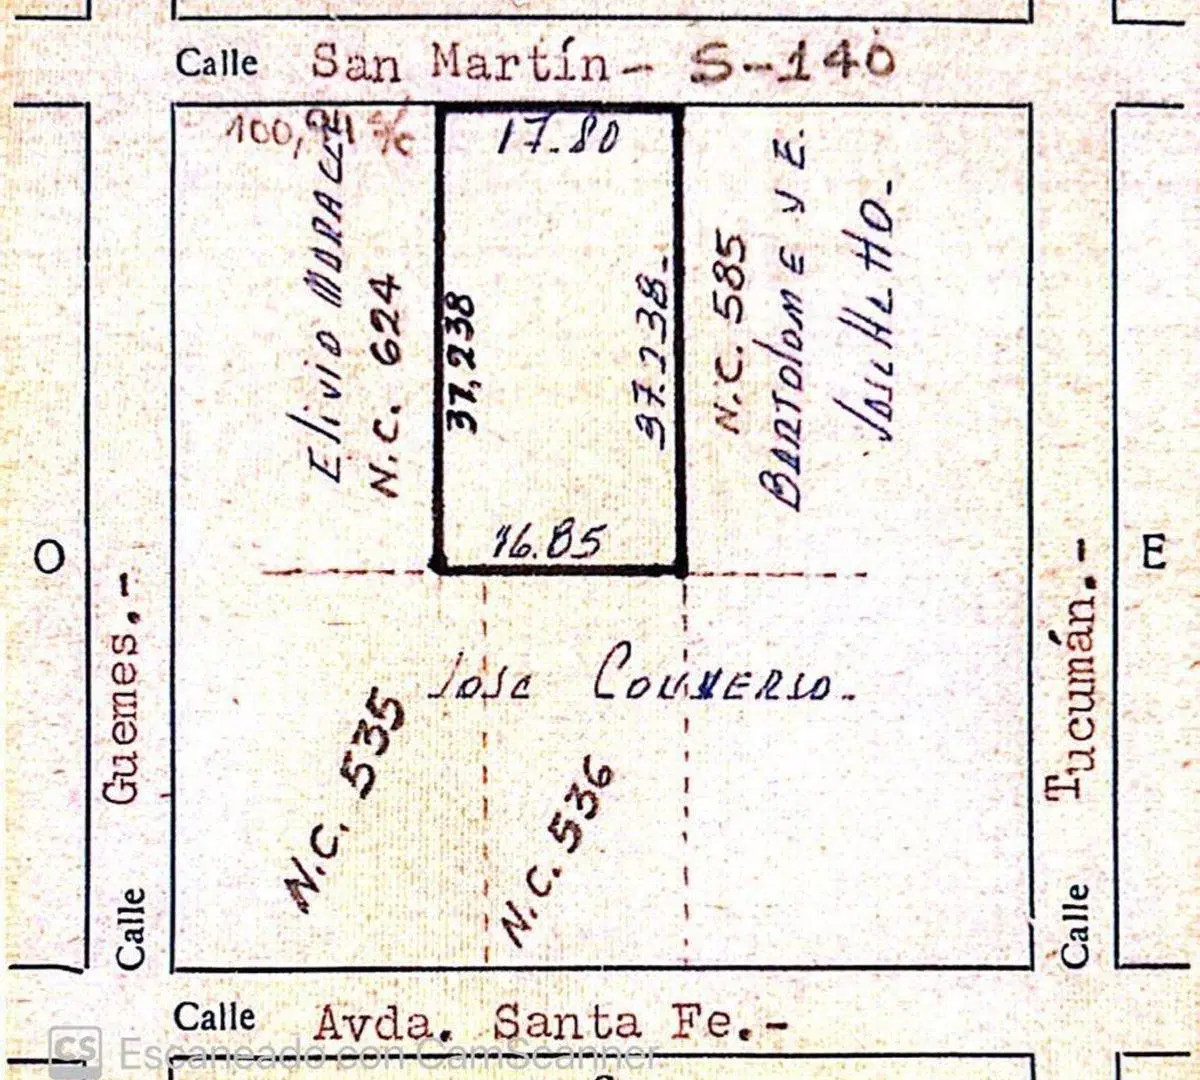 Calle San Martín- S-140
100,
17.80
Elivio
N.C. 624
37,238
37.238-
N.C. 585
BARTOLOME Y E.
16.85
O
E
Jose
N.C. 535
N.C. 536
Calle Guemes.-
Calle Tucumán.-
Calle Avda. Santa Fe.-
CS Escaneado con CamScanner